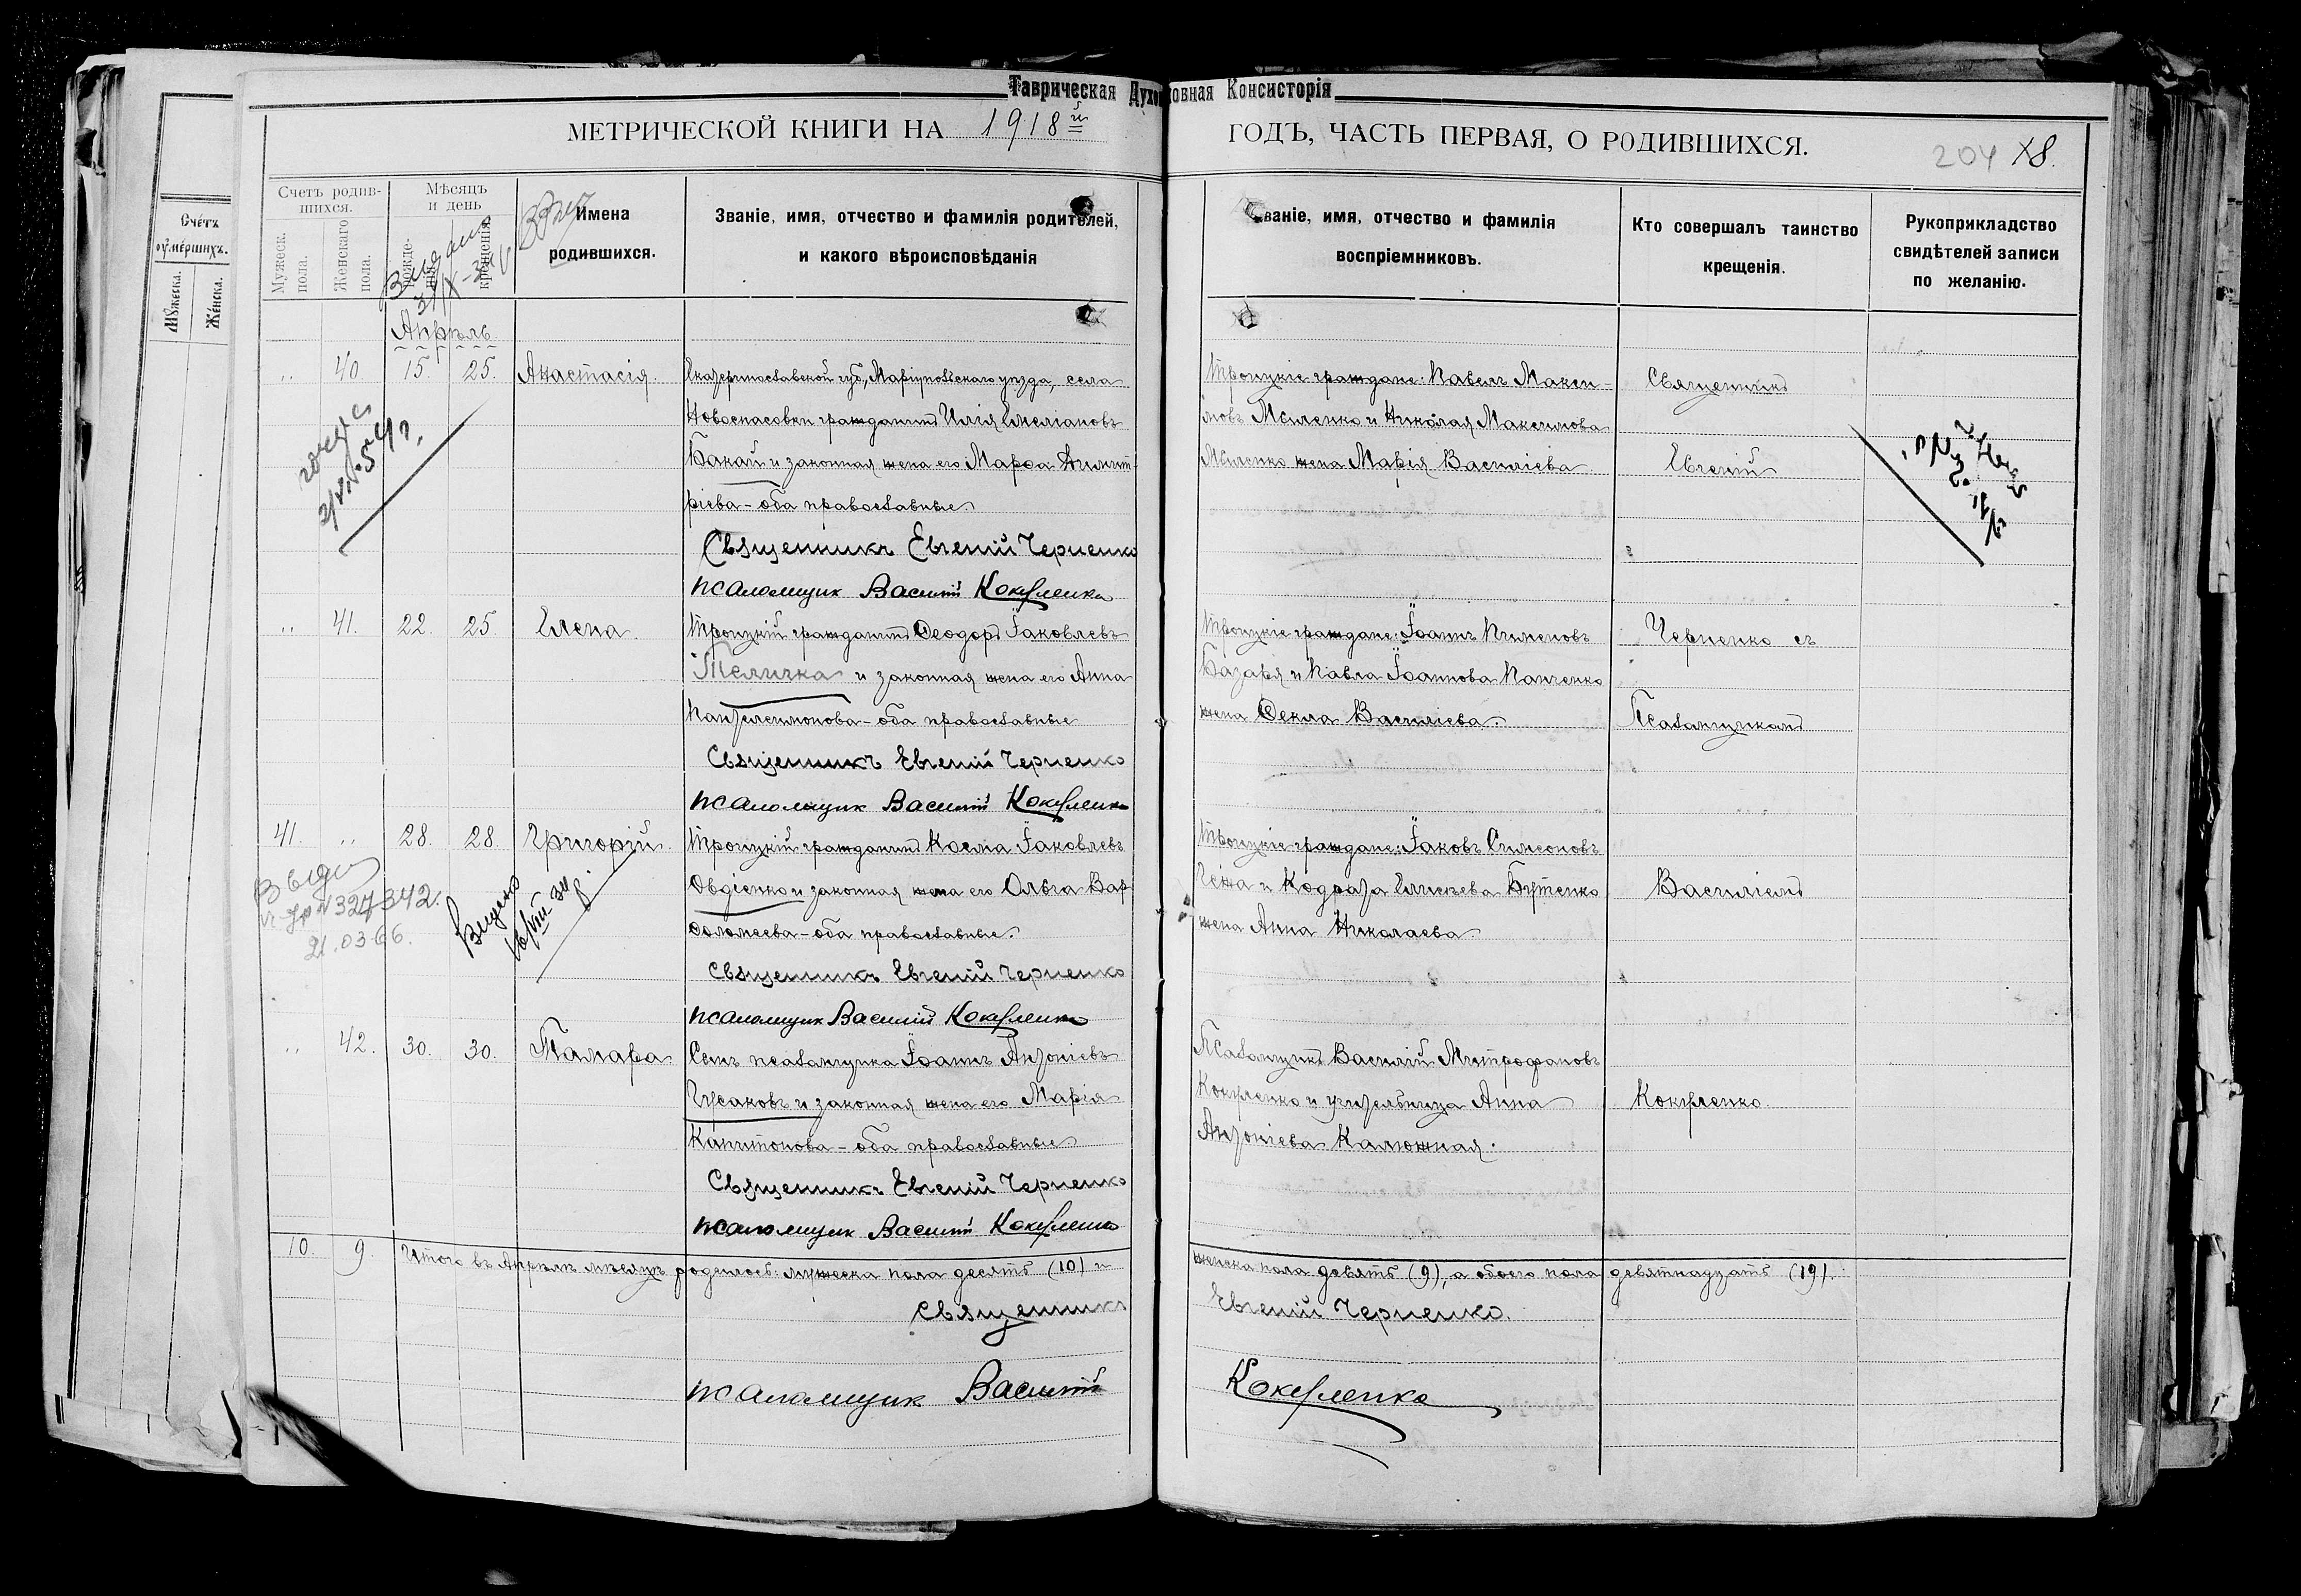 Таврическая Духовная Консисторія
МЕТРИЧЕСКОЙ КНИГИ НА 1918й
ГОДЪ, ЧАСТЬ ПЕРВАЯ, О РОДИВШИХСЯ.
204 78.
Счетъ умершихъ.
Мужеска.
Женска.
Счетъ родив-
шихся.
Мужеск. пола.
Женскаго пола.
Мѣсяцъ
и день
рожде-
нія.
крещенія.
Имена
родившихся.
Званіе, имя, отчество и фамилія родителей,
и какого вѣроисповѣданія
Званіе, имя, отчество и фамилія
воспріемниковъ.
Кто совершалъ таинство
крещенія.
Рукоприкладство
свидѣтелей записи
по желанію.
Апрѣль
„ 40 15. 25. Анастасія. Екатеринославской губ., Маріупольскаго уѣзда, села
Новоспасовки гражданинъ Илія Емеліановъ
Бакай и законная жена его Марѳа Димит-
ріева - оба православные
Священникъ Евгеній Черненко
псаломщик Василий Кокуленко
Троицкіе граждане: Павелъ Макси-
мовъ и Николая Максимова
жена Марія Василіева
Священникъ
Евгеній
„ 41. 22. 25 Елена. Троицкій гражданинъ Ѳеодоръ Іаковлевъ
Теличка и законная жена его Анна
Пантелеимонова - оба православные
Священникъ Евгеній Черненко
псаломщик Василий
Троицкіе граждане: Іоаннъ Пименовъ
и Павла Іоаннова Панченко
жена Ѳекла Василіева.
Черненко съ
Псаломщикомъ
41. „ 28. 28. Григорій. Троицкій гражданинъ Косма Іаковлевъ
Овдіенко и законная жена его Ольга Вар-
ѳоломеева - оба православные.
Священникъ Евгеній Черненко
псаломщик Василий
Троицкіе граждане: Іаковъ Симеоновъ
и Кодрата Елисѣева Бутенко
жена Анна Николаева.
Василіемъ
327342.
21.03.66.
„ 42. 30. 30. Тамара Сынъ псаломщика Іоаннъ Антоніевъ
Гусаковъ и законная жена его Марія
Капитонова - оба православные
Священникъ Евгеній Черненко
псаломщик Василий
Псаломщикъ Василій Митрофановъ
и учительница Анна
Антоніева Калюжная.
10. 9. Итого въ Апрѣлѣ мѣсяцѣ родилось: мужеска пола десять (10) и
женска пола девять (9), а обоего пола девятнадцать (19).
Священникъ Евгеній Черненко.
псаломщик Василий